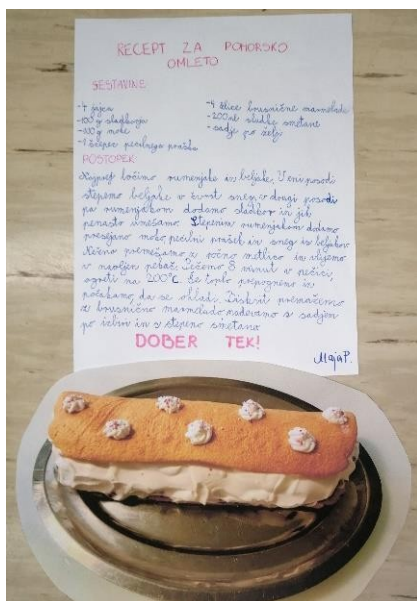 RECEPT ZA POHORSKO
OMLETO
SESTAVINE:
-4 jajca
-100 g sladkorja
-100 g moke
-1 ščepec pecilnega praška
-4 žlice brusnične marmelade
-200 ml sladke smetane
-sadje po želji
POSTOPEK:
Najprej ločimo rumenjake in beljake. V eni posodi
stepemo beljake v čvrst sneg, v drugi posodi
pa rumenjakom dodamo sladkor in jih
penasto umešamo. Stepenim rumenjakom dodamo
presejano moko, pecilni prašek in sneg iz beljakov.
Nežno premešamo z ročno metlico in vlijemo
v naoljen pekač. Pečemo 8 minut v pečici,
ogreti na 200°C. Še toplo prepognemo in
počakamo, da se ohladi. Biskvit premažemo
z brusnično marmelado nadevamo s sadjem
po izbiri in s stepeno smetano.
DOBER TEK!
Maja P.